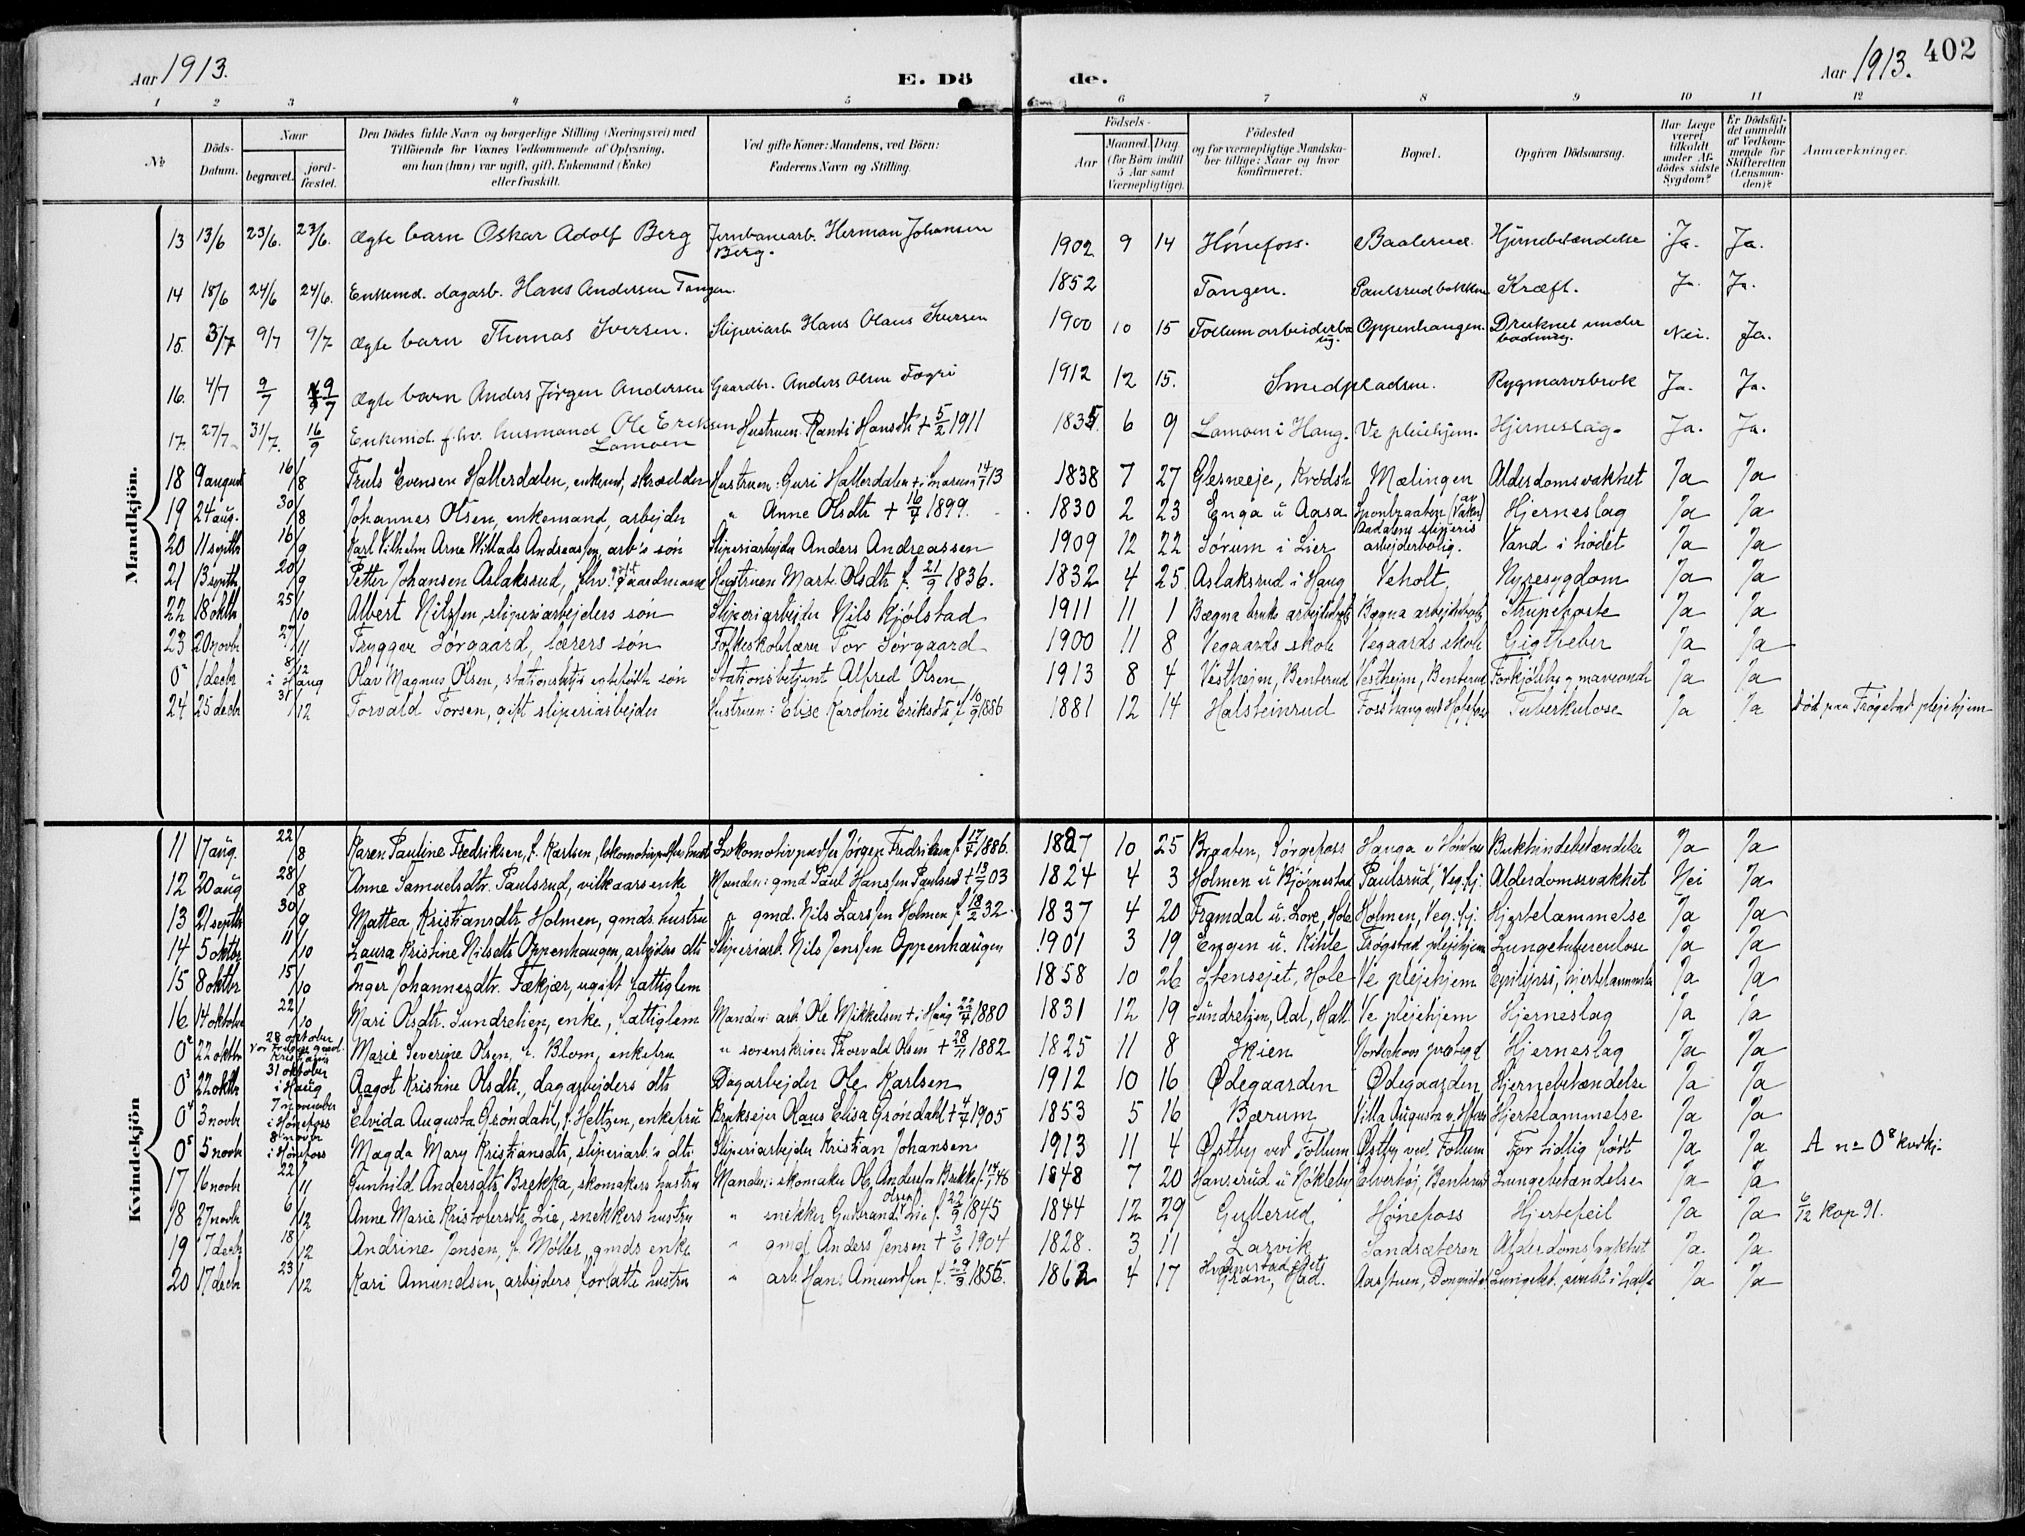 Aar 1913. E. Dö de. Aar 1913. 402
1 2 3 4 5 6 7 8 9 10 11 12
No
Döds-Datum.
Naar
begravet. jord-fæstet.
Den Dödes fulde Navn og borgerlige Stilling (Næringsvei) med
Tilföiende for Voxnes Vedkommende af Oplysning,
om han (hun) var ugift, gift, Enkemand (Enke)
eller fraskilt.
Ved gifte Koner: Mandens, ved Börn:
Faderens Navn og Stilling.
Födsels-
Aar
Maaned. Dag.
(for Börn indtil
5 Aar samt
Værnepligtige).
Födested
og for værnepligtige Mandska-
ber tillige: Naar og hvor
konfirmeret.
Bopæl.
Opgiven Dödsaarsag.
Har Læge
været
tilkaldt
under Af-
dödes sidste
Sygdom?
Er Dödsfal-
det anmeldt
af Vedkom-
mende for
Skifteretten
(Lensman-
den)?
Anmærkninger.
Mandkjön.
13 13/6 23/6. 23/6. Ægte barn Oskar Adolf Berg Jernbanearb. Herman Johansen Berg. 1902 9 14 Hönefoss. Baalerud Hjernebetændelse Ja. Ja.
14 18/6 24/6 24/6. Enkemd. dagarb. Hans Andersen Tangen. 1852 Tangen. Paulsrudbakken Kræft. Ja. Ja.
15. 3/7 9/7 9/7 Ægte barn Thomas Iversen. Sliperiarb. Hans Olaus Iversen 1900 10 15 Follum arbeiderbolig. Oppenhangen. Druknet under badning. Nei. Ja.
16. 4/7 9/7 9/7 Ægte barn Anders Jörgen Andersen Gaardbr. Anders Olsen Fagri 1912 12 15. Smedpladsen. Rygmarvsbrok Ja. Ja.
17. 27/7 31/7. 16/9 Enkemd. f.hv. husmand Ole Eriksen Lamoen Hustruen Randi Hansdt + 5/2 1911 1835. 6 9 Lamoen i Haug. Ve pleiehjem. Hjerneslag. Ja. Ja.
18 9 august 16/8 Truls Evensen Hallerdalen, enkemd, skrædder Hustruen: Guri Hallerdalen + i 14/7 13 1838 7 27 Glesneeje, Krødsh Mælingen Alderdomssvakhet Ja Ja
19 24 aug. 30/8 Johannes Olsen, enkemand, arbejder " Anne Olsdtr + 16/7 1899. 1830 2 23 Enga u Aasa Hjerneslag Ja Ja
20 11 septb 16/9 Karl Vilhelm Arne Willads Andreassen, arb's søn Sliperiarbejder Anders Andreassen 1909 12 22 Sørum i Lier Aadalens sliperis arbejderbolig. Vand i hodet Ja Ja
21 13 septb 20/9 Petter Johansen Aslaksrud, fhv. gift gaardmand Hustruen Mart. Olsdtr f. 21/9 1836. 1832 4 25 Aslaksrud i Haug Veholt, Nyresygdom Ja Ja
22 18 oktb 25/10 Albert Nilssen, sliperiarbejders søn Sliperiarbejder Nils Kjølstad 1911 11 1 Bægna bruks arbejderbol. Bægna arbejderbol. Strupehoste Ja Ja
23 20 novb 27/11 Tryggve Sørgaard, lærers søn Folkeskolelærer Tor Sørgaard 1900 11 8 Vegaards skole Vegaards skole Gigtfeber Ja Ja
0 1 decb 8/12 i Haug Olav Magnus Olsen, stationsbetj's egtefødte søn Stationsbetjent Alfred Olsen 1913 8 4 Vestheim, Benterud Vestheim, Benterud Forkjølelse, maveonde Ja Ja
24 25 decb 31/12 Torvald Torsen, gift sliperiarbejder Hustruen: Elise Karoline Eriksdtr f 10/9 1886 1881 12 14 Halsteinrud Tuberkulose Ja Ja Død paa Frøgstad plejehjem
Kvindekjön
11 17 aug. 22/8 Karen Pauline Fredriksen, f. Karlsen, Lokomotivpudser Jørgen Fredriksen f. 17/7 1886. 1887 10 25 Braaten, Sørgefoss Hauga v Hønefoss Bukhindebetændelse Ja Ja
12 20 aug 28/8 Anne Samuelsdtr. Paulsrud, vilkaarsenke Manden: gmd Paul Hanssen Paulsrud + 13/7 03 1824 4 3 Holmen u Bjørnestad Paulsrud, Veg.fj. Alderdomssvakhet Nei Ja
13 21 septb 30/9 Mattea Kristiansdtr Holmen, gmds hustru " gmd. Nils Larssen Holmen f. 18/2 32. 1837 4 20 Framdal u. Lore, Hole Holmen, Veg.fj. Hjertelammelse Ja Ja
14 5 oktbr 11/10 Laura Kristine Nilsdtr Oppenhaugen, arbejders dtr Sliperiarb. Nils Jenssen Oppenhaugen 1901 3 19 Engen u. Kihle Frøgstad plejehjem Lungetuberculose Ja Ja
15 8 oktbr 15/10 Inger Johannesdtr. Fækjær, ugift fattiglem 1858 10 26 Stensejet, Hole Ve plejehjem Epilepsi, hjertelammelse Ja Ja
16 14 oktober 22/10 Mari Olsdtr. Sundrehen, enke, fattiglem Manden: arb Ole Mikkelsen + i Haug 1880 1831 12 19 Sundrehen, Aal, Hall. Ve plejehjem Hjerneslag Ja Ja
0² 22 oktbr 28 oktober Vor Frelsers gravl. Kristiania Marie Severine Olsen, f. Blom, enkefru " sorenskriver Thorvald Olsen + 28/11 1882 1825 11 8 Skien Norderhovs prestegd Hjerneslag Ja Ja
0³ 22 oktbr 31 oktober i Haug Aagot Kristine Olsdtr, dagarbejders dtr Dagarbejder Ole Karlsen 1912 10 16 Ødegaarden Ødegaarden Hjernebetændelse Ja Ja
0⁴ 3 novb 7 november i Hønefoss Elvida Augusta Grøndahl, f. Heltzen, enkefru Bruksejer Olaus Elisa Grøndahl + 4/7 1905 1853 5 16 Bærum Villa Augusta v. Hfoss Hjertelammelse Ja Ja
0⁵ 5 novb 8 novbr i Hønefoss Magda Mary Kristiansdtr, sliperiarb.s dtr Sliperiarbejder Kristian Johansen 1913 11 4 Østby ved Follum Østby ved Follum For tidlig født Ja Ja A no 0⁸ kvdkj.
17 16 novb 22/11 Gunhild Andersdtr Brekka, skomakers hustru Manden: skomaker Ol. Anderssen Brekka 1848 7 20 Hanserud u Nøkleby Elverhøj, Benterud Lungebetændelse Ja Ja
18 27 novb 6/12 Anne Marie Kristofersdtr Lie, snekkers hustru " snekker Gulbrand Olsen Lie f. 22/9 1845 1844 12 29 Gullerud Hønefoss Hjertefeil Ja Ja 6/12 kop 91.
19 7 decb 18/12 Andrine Jensen, f. Møller, gmds enke " gmd. Anders Jensen + 3/6 1904 1828. 3 11 Larvik Sandræteren Alderdomssvakhet Ja Ja
20 17 decb 23/12 Kari Amundsen, arbejders forlatte hustru " arb. Hans Amundsen f. 29/3 1856. 1862 4 17 Gran, Had. Ja Ja